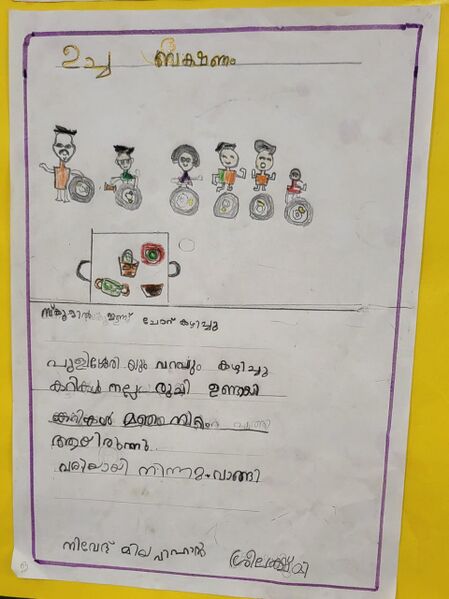 ഉച്ച ഭക്ഷണം
സ്കൂളിൽ ഇന്ന് ചോറ് കഴിച്ചു
പുളിശ്ശേരിയും വറവും കഴിച്ചു
കറികൾ നല്ല രുചി ഉണ്ടായി
കറികൾ മഞ്ഞ നിറം
ആയിരുന്നു.
വരിയായി നിന്ന് വാങ്ങി
നിവേദ് മിലൻ ശ്രീലക്ഷ്മി